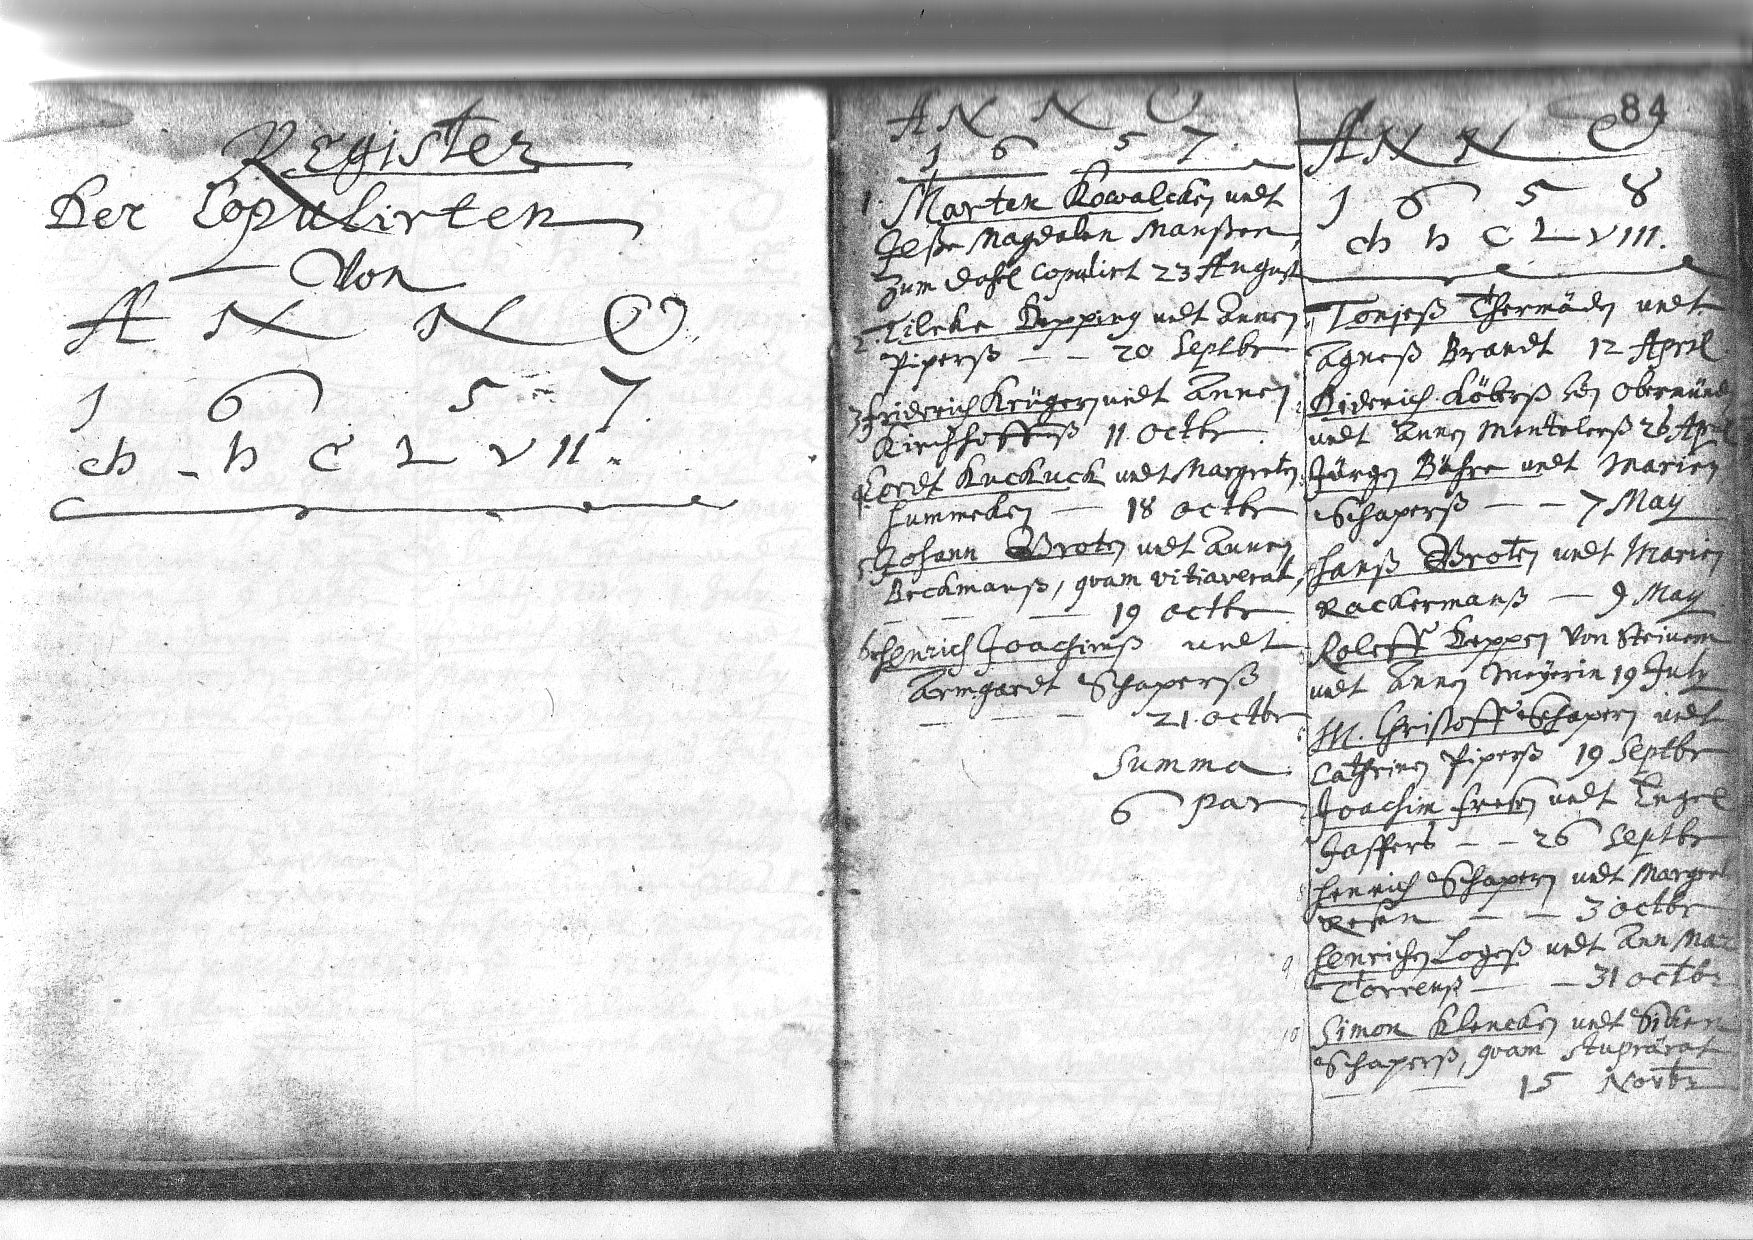 Register
Der Copulirten
Von
ANNO
1657.
ch - h C L VII.
84
ANNO
1657.
1. Marten Kowalcken undt
Ilse Magdalen Manßen,
zum Dahl Copulirt 23 August
2. Tileke Depping undt Annen
Piperß — — 20 Septbr
3 Friderich Krügern undt Annen
Kirchhoffß 11. Octbr.
4. Cordt Kuckuck undt Margreten
Hummeken — 18 Octbr
5. Johann Groten undt Annen
Beckmanß, quam vitiaverat,
— — — 19 Octbr
6. Henrich Joachimß undt
Armgardt Schaperß
— — — 21. Octbr
Summa
6 par
ANNO
1658
ch h C L VIII.
Tonjeß Thermäden undt
Agneß Brandt 12 April
Diderich Köberß Obermünd
undt Annen Mentelerß 26 April
Jürgen Bähre undt Marien
Schaperß — — 7 May
Hanß Groten undt Marien
Rackermanß — 9 May
Roleff Deppen von Steinem
undt Annen Meyerin 19 July
M. Christoff Schapern undt
Cathrinen Piperß 19 Septbr
Joachim Fresen undt Engel
Jaspers — — 26 Septbr
Henrich Schapern undt Margret
Resen — — 3 Octbr
9 Henrichen Logeß undt Ann Mar
Torrenß — — 31 Octbr
10 Simon Klencken undt Siken
Schaperß, quam stuprârat
— — 15 Novbr